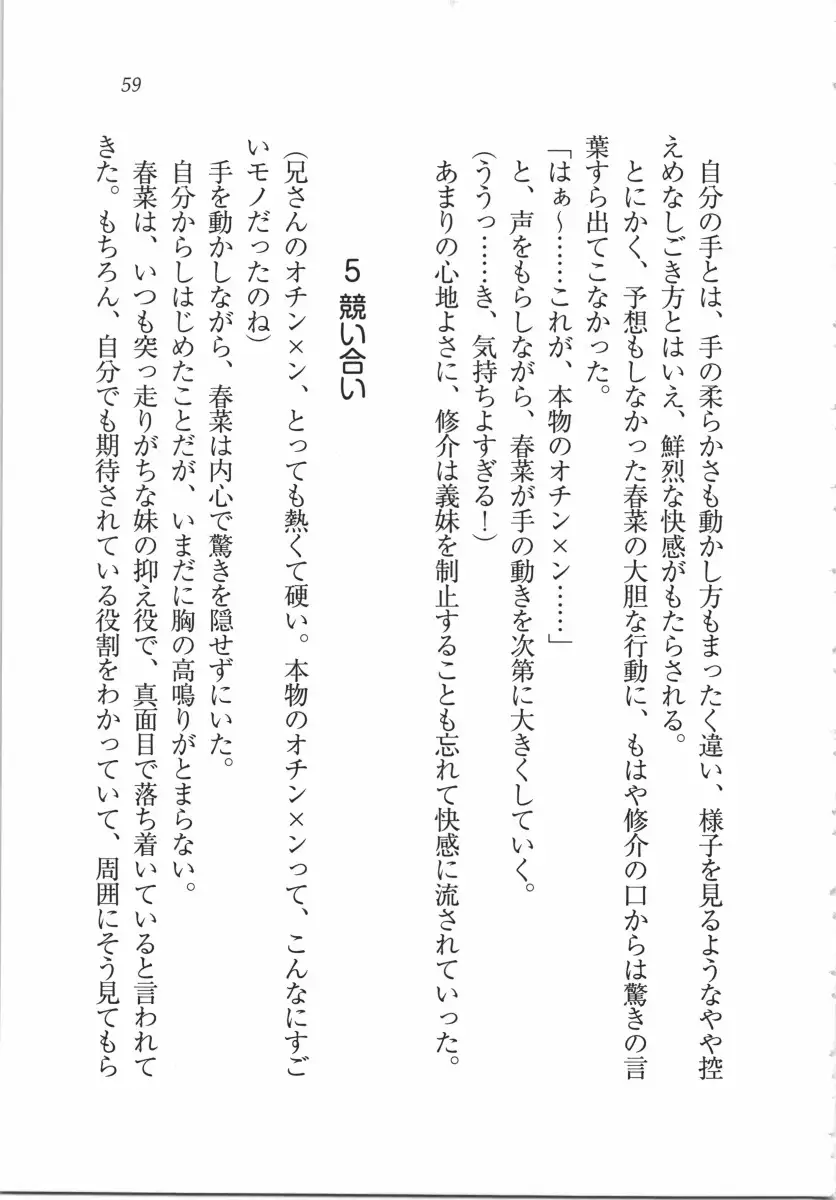 59
自分の手とは、手の柔らかさも動かし方もまったく違い、様子を見るようなやや控
えめなしごき方とはいえ、鮮烈な快感がもたらされる。
とにかく、予想もしなかった春菜の大胆な行動に、もはや修介の口からは驚きの言
葉すら出てこなかった。
「はぁ〜……これが、本物のオチン×ン……」
と、声をもらしながら、春菜が手の動きを次第に大きくしていく。
(ううっ……き、気持ちよすぎる!)
あまりの心地よさに、修介は義妹を制止することも忘れて快感に流されていった。
5 競い合い
(兄さんのオチン×ン、とっても熱くて硬い。本物のオチン×ンって、こんなにすご
いモノだったのね)
手を動かしながら、春菜は内心で驚きを隠せずにいた。
自分からしはじめたことだが、いまだに胸の高鳴りがとまらない。
春菜は、いつも突っ走りがちな妹の抑え役で、真面目で落ち着いていると言われて
きた。もちろん、自分でも期待されている役割をわかっていて、周囲にそう見てもら